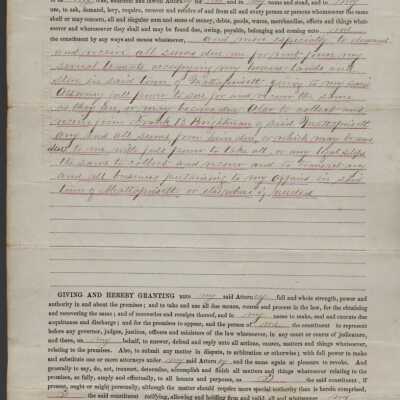 me, true, sufficient and lawful Attorney, for me, and in my name and stead, and in my
use, to ask, demand, levy, require, recover and receive of and from all and every person or persons whomsoever the same
shall or may concern, all and singular sum and sums of money, debts, goods, wares, merchandise, effects and things what-
soever and wheresoever they shall and may be found due, owing, payable, belonging and coming unto me
the constituent by any ways and means whatsoever, and more especially to demand
and receive all sums due me for rent from my
several tenants occupying my houses lands and
store in said town of Mattapoisett giving to my said
Attorney full power to sue for and recover the same
as they are, or may become due. Also to collect and
receive from B. Brightman of said Mattapoisett
any and all sums from him due or which may become
due to me, with full power to take all or any legal steps
the same to collect and recover and to transact any
and all business pertaining to my affairs in said
town of Mattapoisett or elsewhere if needed
GIVING AND HEREBY GRANTING unto my said Attorney full and whole strength, power and
authority in and about the premises; and to take and use all due means, course and process in the law, for the obtaining
and recovering the same; and of recoveries and receipts thereof, and in my name to make, seal and execute due
acquittance and discharge; and for the premises to appear, and the person of me the constituent to represent
before any governor, judges, justices, officers and ministers of the law whatsoever, in any court or courts of judicature,
and there, on my behalf, to answer, defend and reply unto all actions, causes, matters and things whatsoever,
relating to the premises. Also, to submit any matter in dispute, to arbitration or otherwise; with full power to make
and substitute one or more attorneys under my said Attorney and the same again at pleasure to revoke. And
generally to say, do, act, transact, determine, accomplish and finish all matters and things whatsoever relating to the
premises, as fully, amply and effectually, to all intents and purposes, as I the said constituent, if
present, ought or might personally, although the matter should require more special authority than is herein comprised,
I the said constituent ratifying, allowing and holding firm and valid, all and whatsoever my